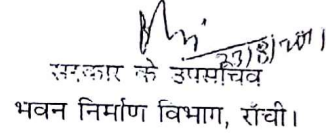 23/8/2011
सरकार के उपसचिव
भवन निर्माण विभाग, राँची।